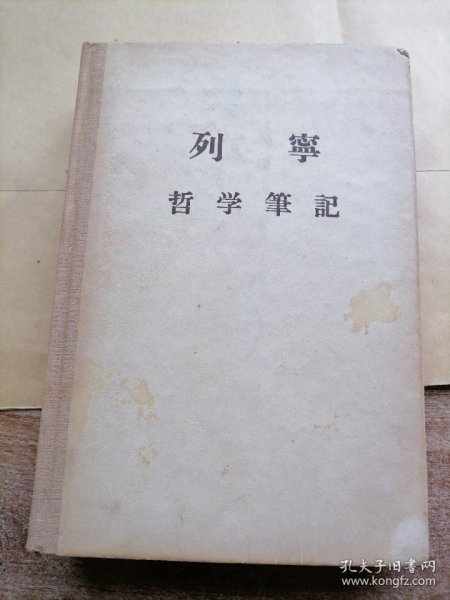 列寧
哲学筆記
孔夫子旧书网
www.kongfz.com